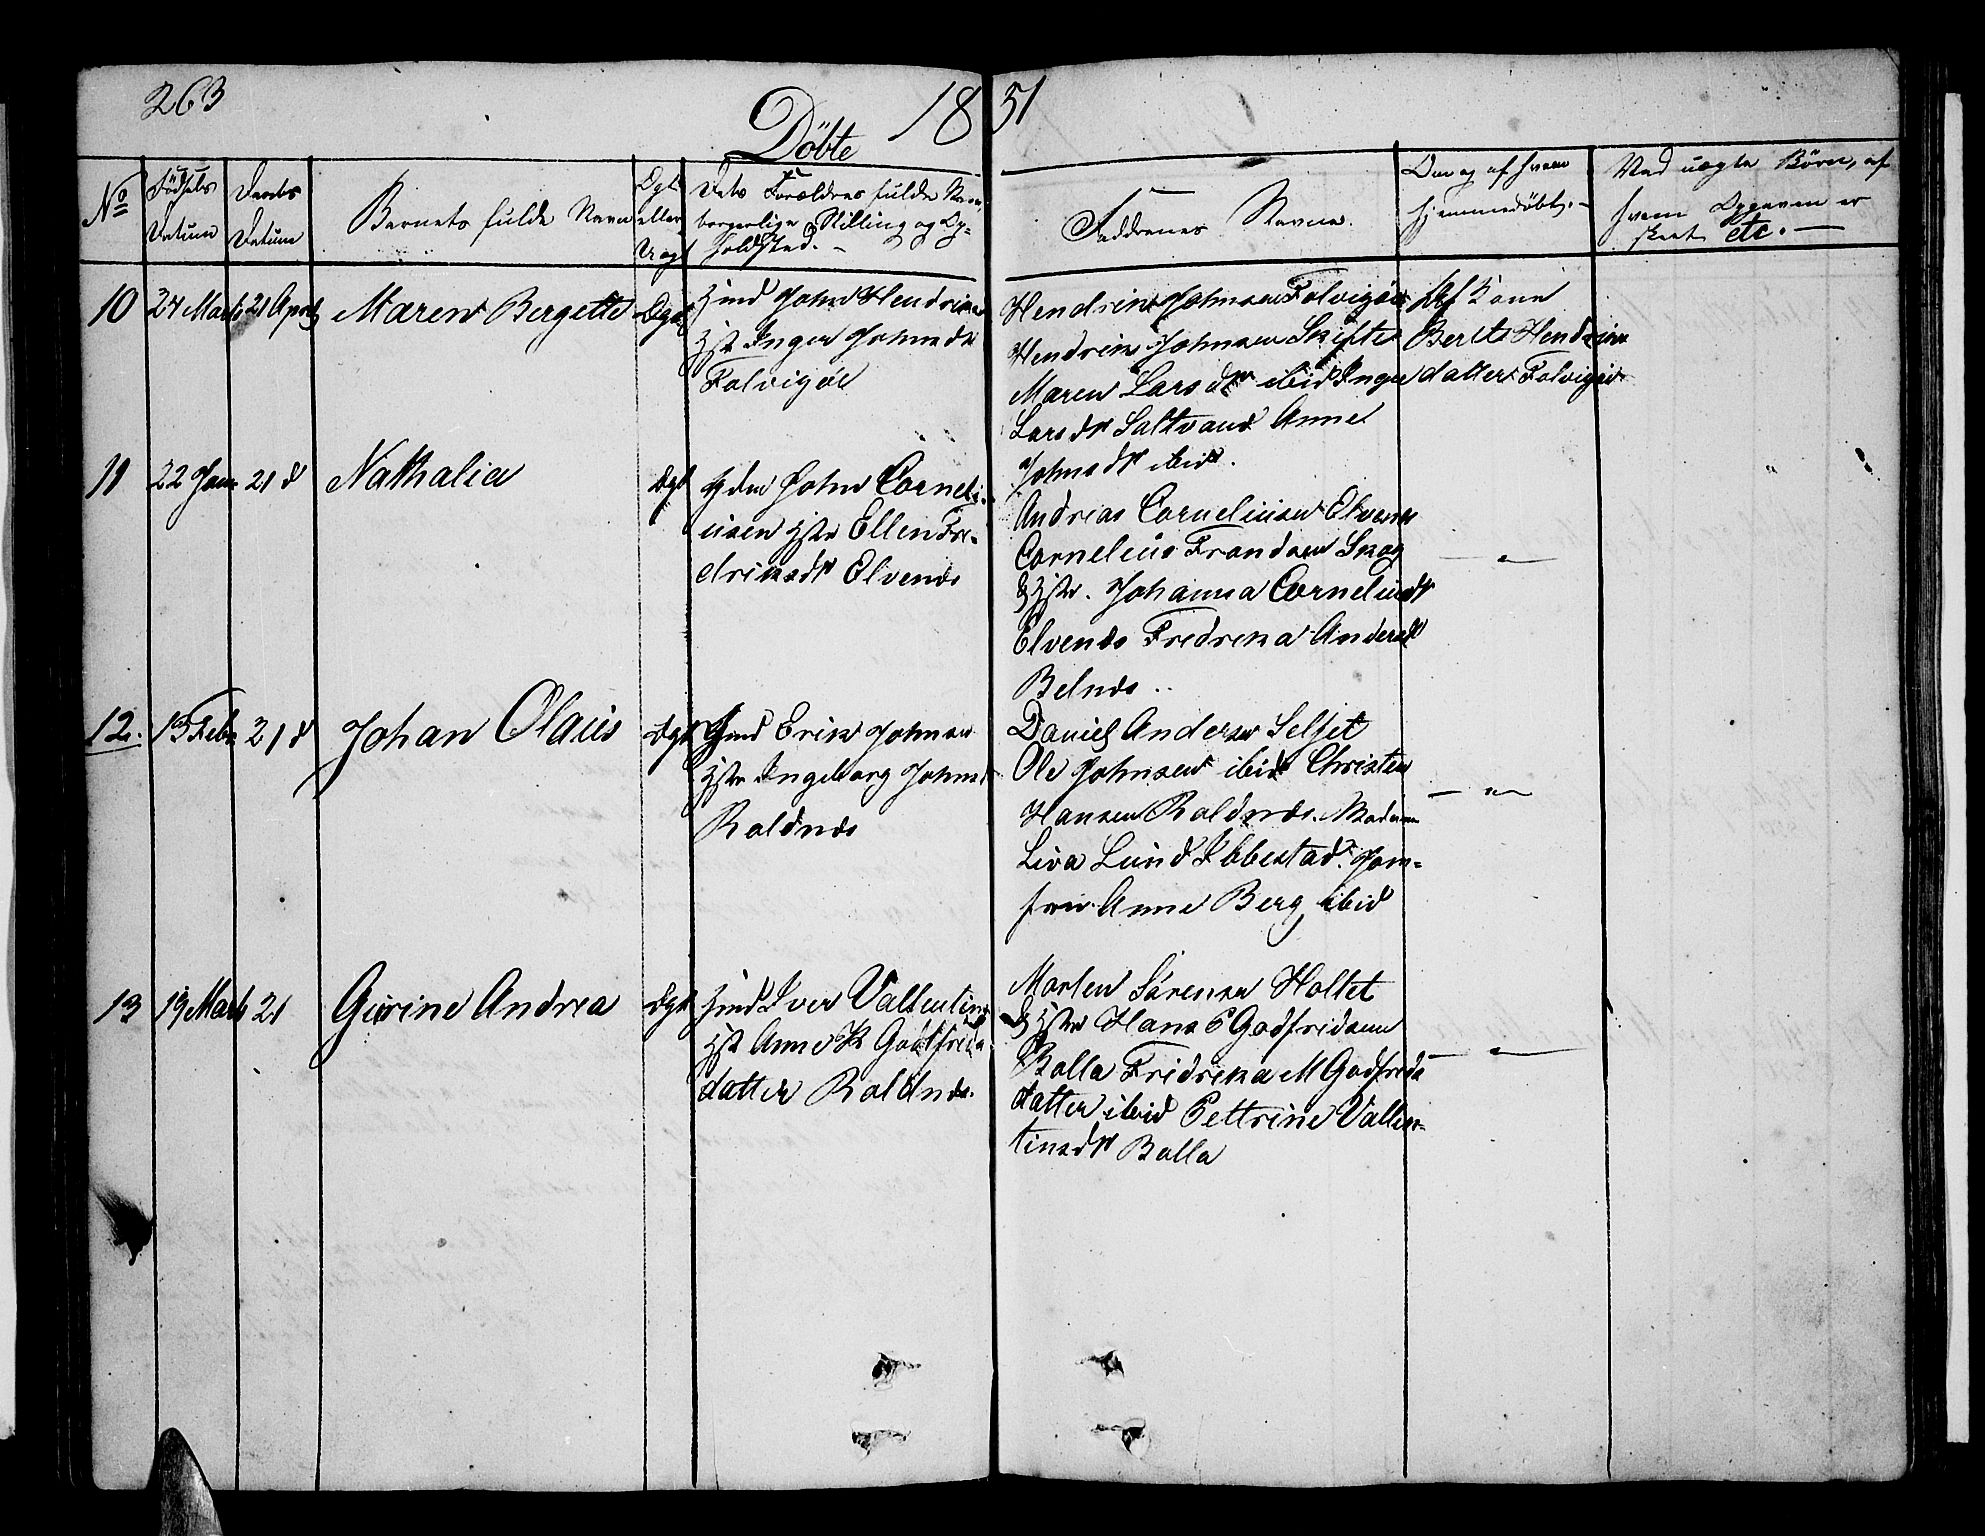 263
Döbte 18 51
No
Födsels Datum
Daabs Datum
Barnets fulde Navn
Ægt eller Uægt
Dets Forældres fulde Navn,
borgerlige Stilling og Op-
holdsted. -
Faddernes Navne.
Om og af hvem
hjemmedöbt. -
Ved uægte Börn, af
hvem Opgaven er
skeet etc. -
10 24 Marts 21 April Maren Bergette Ægt
Hmd John Hendriksen
Hst Inger Johnsdr
Folvigöe
Hendrik Johnsen Folvigöe
Hendrik Johnsen Skifte
Maren Larsdr ibid Inger
Larsdr Saltvand Anne
Johnsdr ibid.
Af Kone
Berit Hendriks
datter Folvigöe
11 22 Jan 21 d Nathalia Ægt
John Corneli-
usen Hstr Ellen Fre-
driksdr Elvenes
Andreas Corneliusen Elvenes
Cornelius Frandsen Skog
& Hstr. Johanna Corneliusdr
Elvenes Fredrika Andersdr
Belnes ..
— " —
12. 13 Febr 21 d Johan Olaus Ægt
Gmd Erik Johnsen
Hstr Ingeborg Johnsd
Roldnes
Daniel Andersen Selset
Ole Johnsen ibid Christen
Hansen Roldnes. Madam
Liva Lund Ibbestad. Jom-
fru Anne Berg ibid
— " —
13 19 Marts 21 Gurine Andrea Ægt
Hmd Iver Vallentins
Hst Anne K Godtfrids
datter Roldnes.
Morten Sörensen Holtet
& Hstr Hans P Godfridsen
Bolla Fridrika M Godfreds
datter ibid Pettrine Vallen-
tinsdr Bolla
— " —